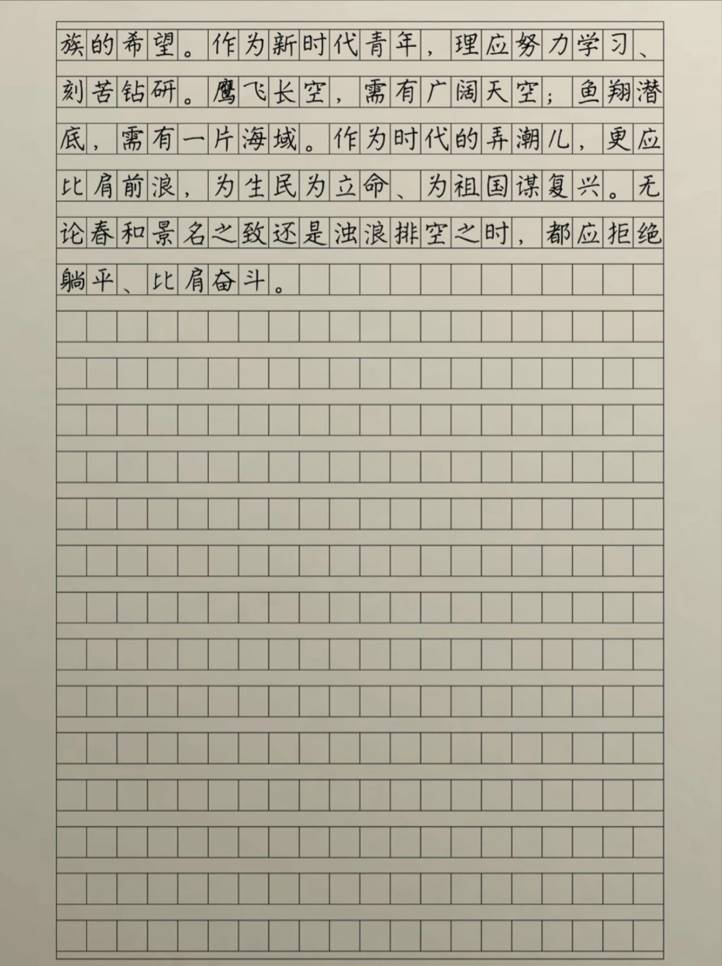 族的希望。作为新时代青年，理应努力学习、
刻苦钻研。鹰飞长空，需有广阔天空；鱼翔潜
底，需有一片海域。作为时代的弄潮儿，更应
比肩前浪，为生民为立命、为祖国谋复兴。无
论春和景名之致还是浊浪排空之时，都应拒绝
躺平、比肩奋斗。